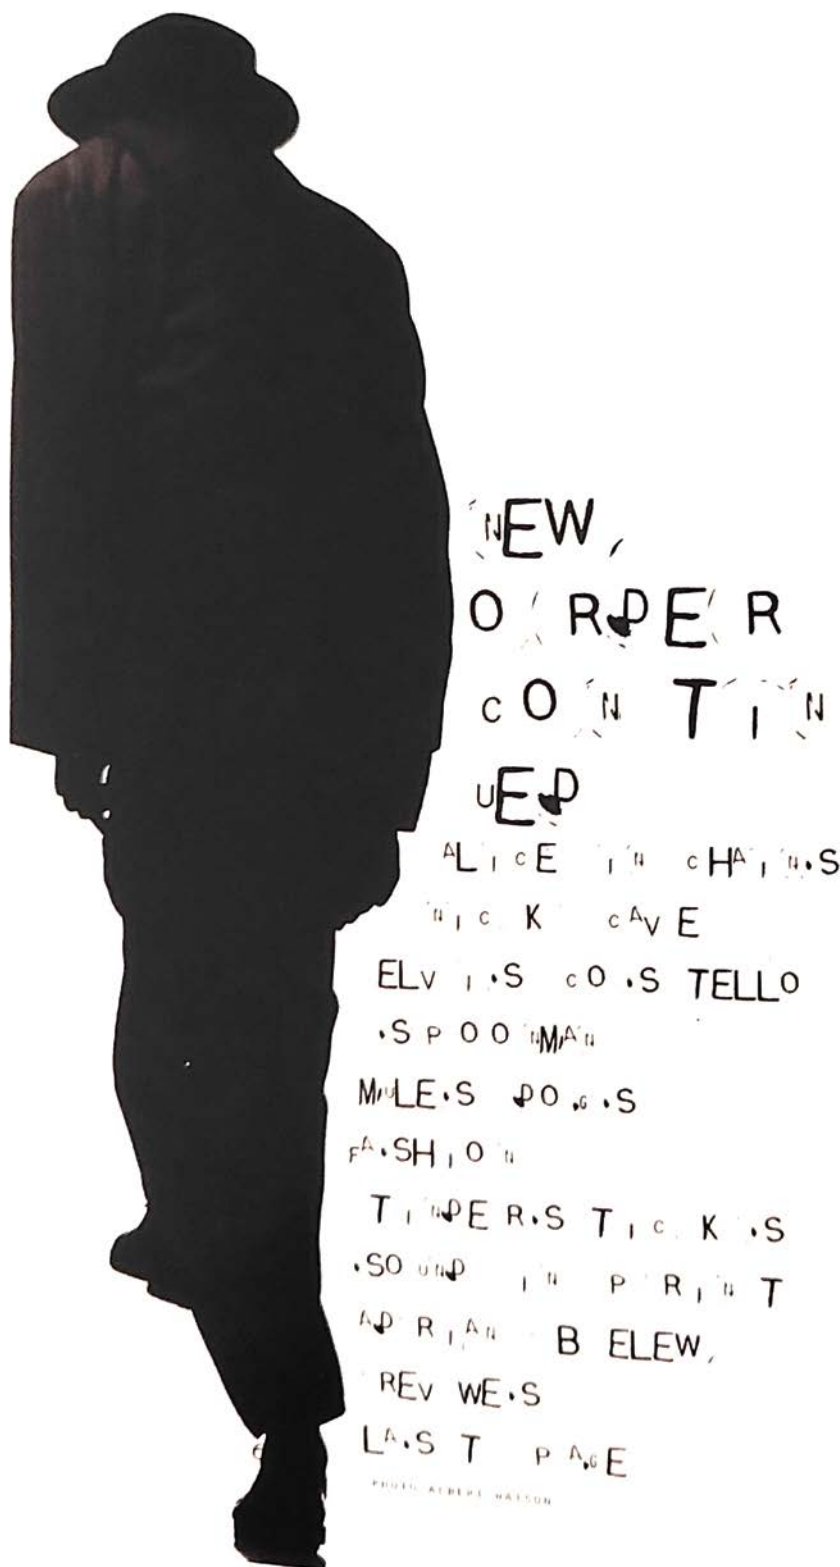 NEW
ORDER
CONTIN
UED
ALICE IN CHAINS
NICK CAVE
ELVIS COSTELLO
SPOONMAN
MULES DOGS
FASHION
TINDERSTICKS
SOUND IN PRINT
ADRIAN BELEW
REV WES
LAST PAGE
PHOTO ALBERT WATSON